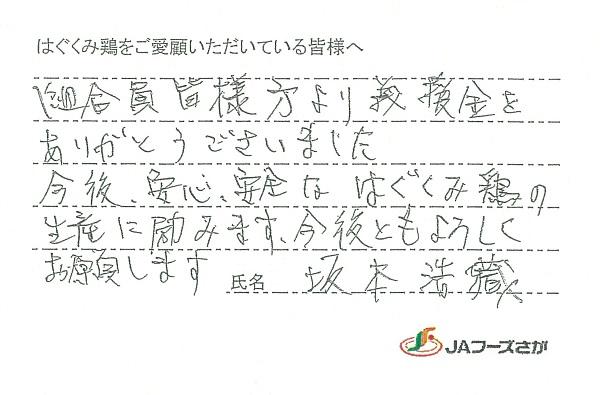 はぐくみ鶏をご愛顧いただいている皆様へ
組合員皆様方より義援金を
ありがとうございました
今後、安心、安全な はぐくみ鶏の
生産に励みます、今後ともよろしく
お願します 氏名 坂本浩
JAフーズさが